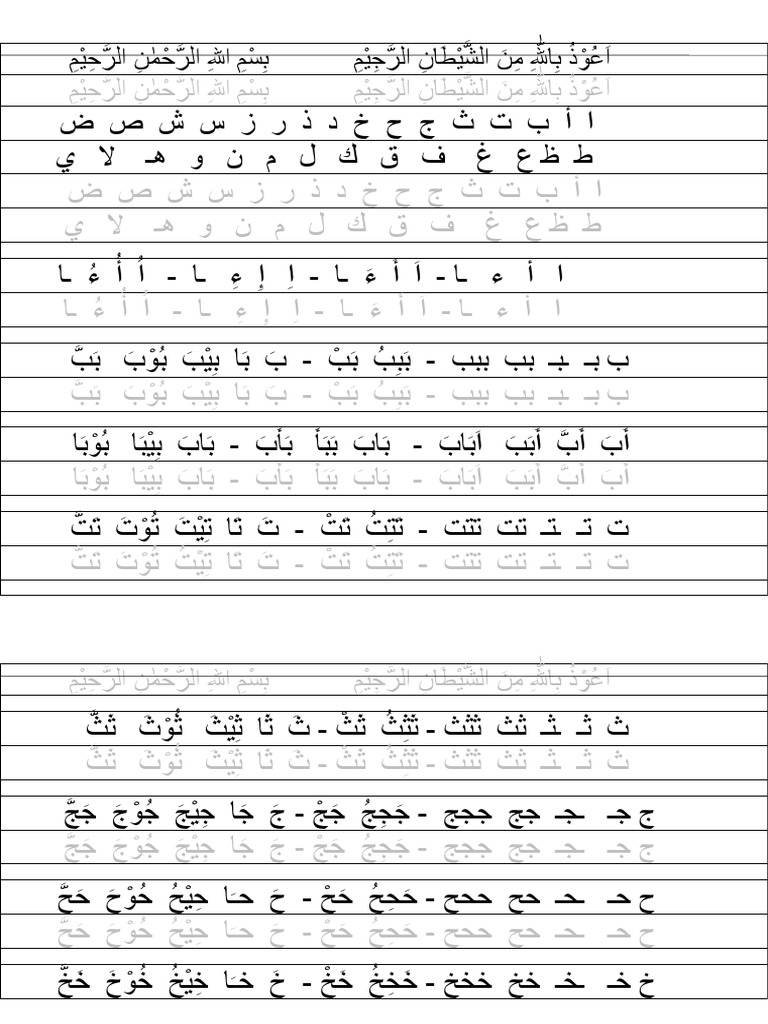 اَعُوْذُ بِاللّٰهِ مِنَ الشَّيْطَانِ الرَّجِيْمِ بِسْمِ اللهِ الرَّحْمٰنِ الرَّحِيْمِ
اَعُوْذُ بِاللّٰهِ مِنَ الشَّيْطَانِ الرَّجِيْمِ بِسْمِ اللهِ الرَّحْمٰنِ الرَّحِيْمِ
ا أ ب ت ث ج ح خ د ذ ر ز س ش ص ض
ط ظ ع غ ف ق ك ل م ن و هـ لا ي
ا أ ب ت ث ج ح خ د ذ ر ز س ش ص ض
ط ظ ع غ ف ق ك ل م ن و هـ لا ي
ا أ ء ـا - اَ أَ ءَ ـا - اِ إِ ءِ ـا - اُ أُ ءُ ـا
ا أ ء ـا - اَ أَ ءَ ـا - اِ إِ ءِ ـا - اُ أُ ءُ ـا
ب بـ ـبـ بب ببب - بَبِبُ بَبْ - بَ بَا بِيْبَ بُوْبَ بَبَّ
ب بـ ـبـ بب ببب - بَبِبُ بَبْ - بَ بَا بِيْبَ بُوْبَ بَبَّ
أَبَ أَبَّ أَبَبَ اَبَابَ - بَابَ بَبَأَ بَأَبَ - بَابَ بِيْبَا بُوْبَا
أَبَ أَبَّ أَبَبَ اَبَابَ - بَابَ بَبَأَ بَأَبَ - بَابَ بِيْبَا بُوْبَا
ت تـ ـتـ تت تتت - تَتِتُ تَتْ - تَ تَا تِيْتَ تُوْتَ تَتَّ
ت تـ ـتـ تت تتت - تَتِتُ تَتْ - تَ تَا تِيْتُ تُوْتَ تَتَّ
اَعُوْذُ بِاللّٰهِ مِنَ الشَّيْطَانِ الرَّجِيْمِ بِسْمِ اللهِ الرَّحْمٰنِ الرَّحِيْمِ
ث ثـ ـثـ ثث ثثث - ثَثِثُ ثَثْ - ثَ ثَا ثِيْثَ ثُوْثَ ثَثَّ
ث ثـ ـثـ ثث ثثث - ثَثِثُ ثَثْ - ثَ ثَا ثِيْثَ ثُوْثَ ثَثَّ
ج جـ ـجـ جج ججج - جَجِجُ جَجْ - جَ جَا جِيْجَ جُوْجَ جَجَّ
ج جـ ـجـ جج ججج - جَجِجُ جَجْ - جَ جَا جِيْجَ جُوْجَ جَجَّ
ح حـ ـحـ حح ححح - حَحِحُ حَحْ - حَ حَا حِيْحُ حُوْحَ حَحَّ
ح حـ ـحـ حح ححح - حَحِحُ حَحْ - حَ حَا حِيْحُ حُوْحَ حَحَّ
خ خـ ـخـ خخ خخخ - خَخِخُ خَخْ - خَ خَا خِيْخُ خُوْخَ خَخَّ